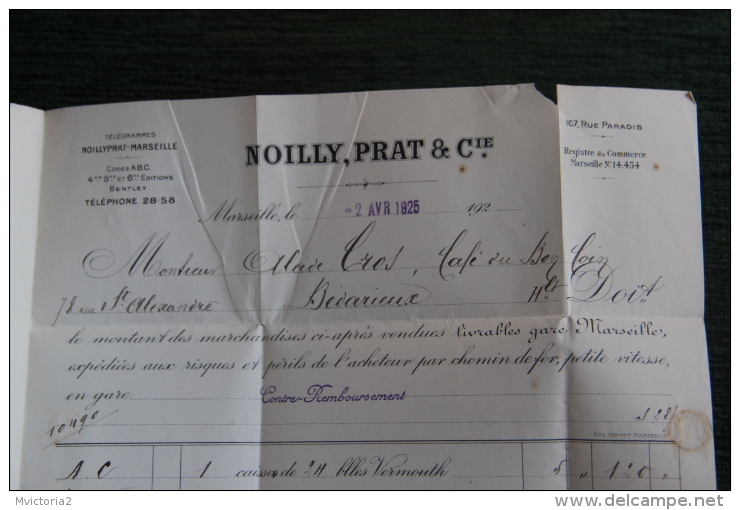 TÉLÉGRAMMES
NOILLYPRAT-MARSEILLE
CODES A.B.C.
4me 5me ET 6me EDITIONS
BENTLEY
TÉLÉPHONE 28-58
NOILLY, PRAT & CIE.
167, RUE PARADIS
Registre du Commerce
Marseille No 14.454
Marseille, le -2 AVR 1925 192
Monsieur Cros, Café du Bon Coin
78 rue St. Alexandre Bédarieux Hlt Doit
le montant des marchandises ci-après vendues livrables gare Marseille,
expédiées aux risques et périls de l'acheteur par chemin de fer, petite vitesse,
en gare Contre-Remboursement
10490
A.C 1 caisse de 24 Blles Vermouth 5 " 120 "
Mvictoria2
delcampe.net